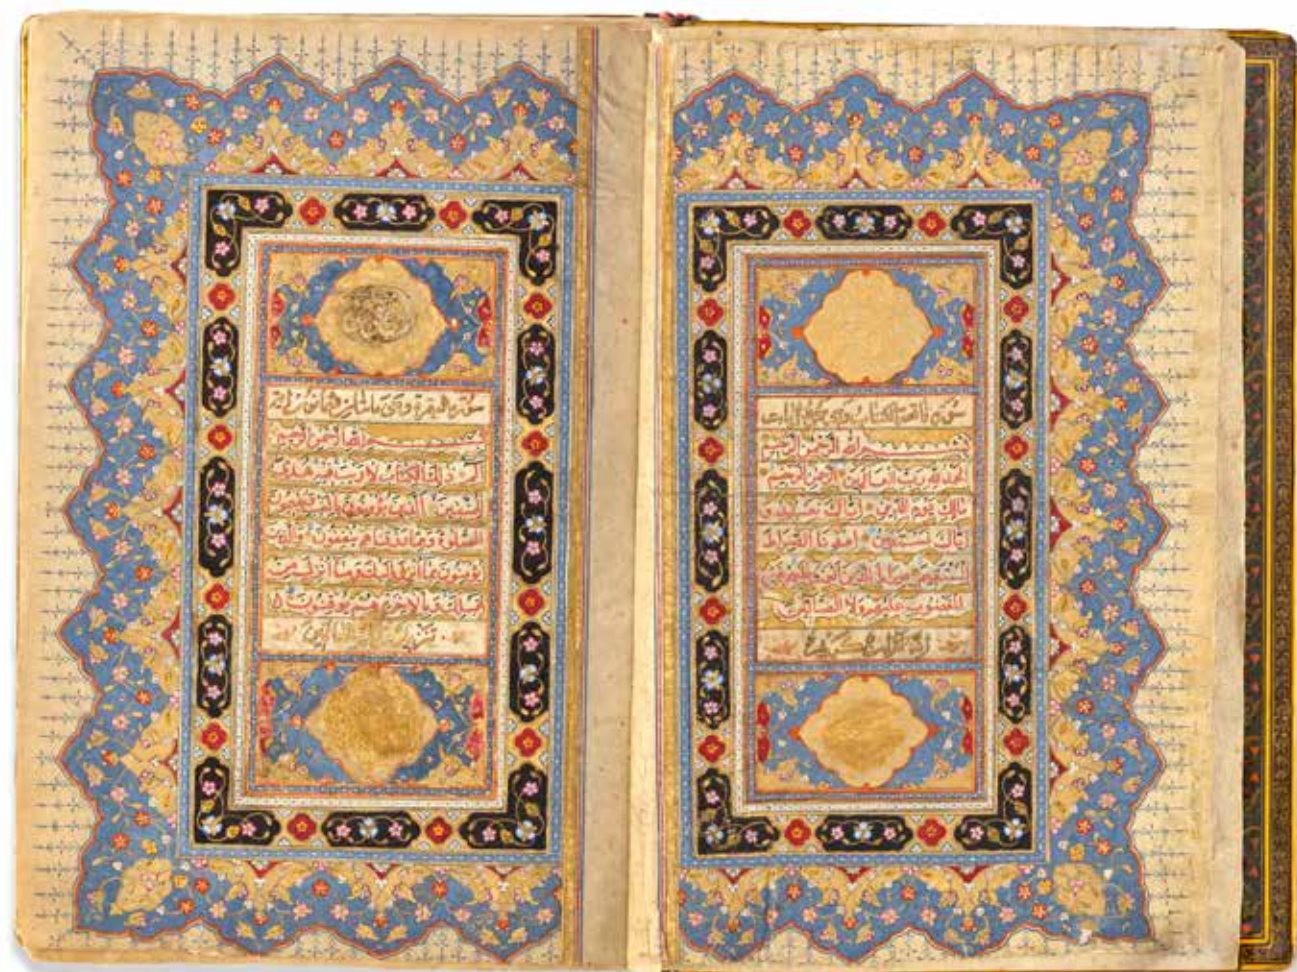 سورة فاتحة الكتاب وهي سبع آيات
بسم الله الرحمن الرحيم
الحمد لله رب العالمين الرحمن الرحيم
مالك يوم الدين اياك نعبد و
اياك نستعين اهدنا الصراط
المستقيم صراط الذين انعمت عليهم غير
المغضوب عليهم ولا الضالين
انه لقرآن كريم
سورة البقرة وهي مائتان
بسم الله الرحمن الرحيم
الم ذلك الكتاب لا ريب فيه هدى
للمتقين الذين يؤمنون بالغيب ويقيمون
الصلوة ومما رزقناهم ينفقون والذين
يؤمنون بما أنزل اليك وما أنزل من
قبلك وبالاخرة هم يوقنون
تنزيل من رب العالمين